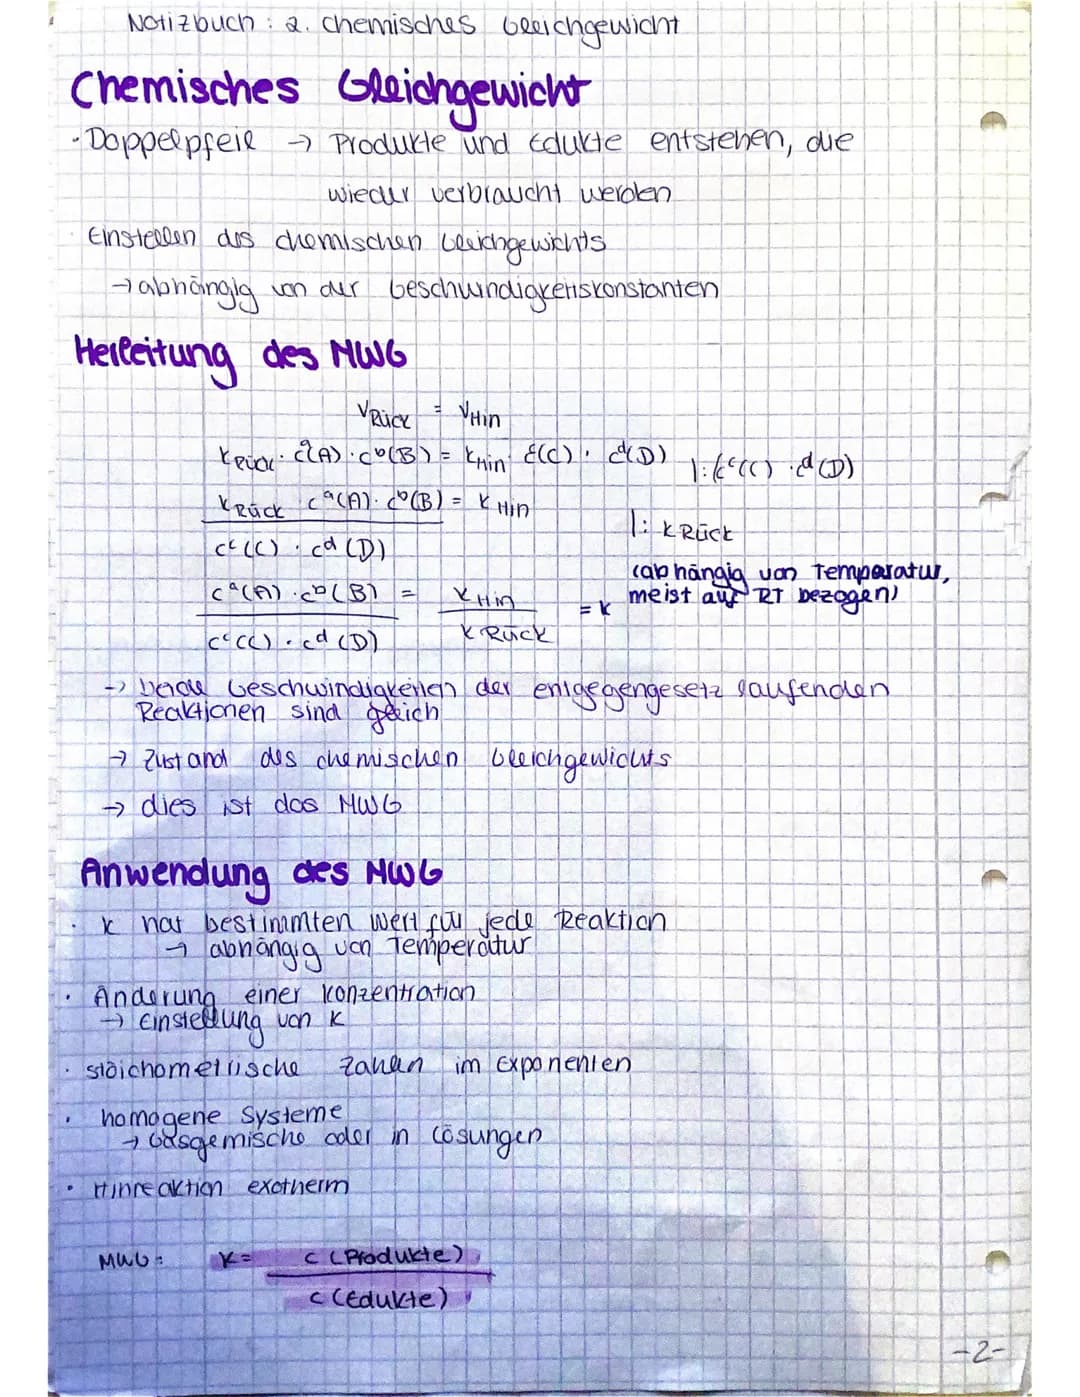 Notizbuch : 2. chemisches Gleichgewicht
Chemisches Gleichgewicht
· Doppelpfeil → Produkte und Edukte entstehen, die
wieder verbraucht werden
Einstellen des chemischen Gleichgewichts
→ abhängig von der Geschwindigkeitskonstanten
Herleitung des MWG
vRück = vHin
kRück · cᵃ(A) · cᵇ(B) = kHin · cᶜ(C) · cᵈ(D) |: cᶜ(C) · cᵈ(D)
kRück · cᵃ(A) · cᵇ(B) = kHin |: kRück
cᶜ(C) · cᵈ(D)
(abhängig von Temperatur,
meist auf RT bezogen)
cᵃ(A) · cᵇ(B) = kHin = K
cᶜ(C) · cᵈ(D) kRück
→ beide Geschwindigkeiten der entgegengesetz laufenden
Reaktionen sind gleich
→ Zustand des chemischen Gleichgewichts
→ dies ist das MWG
Anwendung des MWG
· K hat bestimmten Wert für jede Reaktion
→ abhängig von Temperatur
· Änderung einer Konzentration
→ Einstellung von K
· stöichometrische Zahlen im Exponenten
· homogene Systeme
→ Gasgemische oder in Lösungen
· Hinreaktion exotherm
MWG: K = c (Produkte)
c (Edukte)
-2-